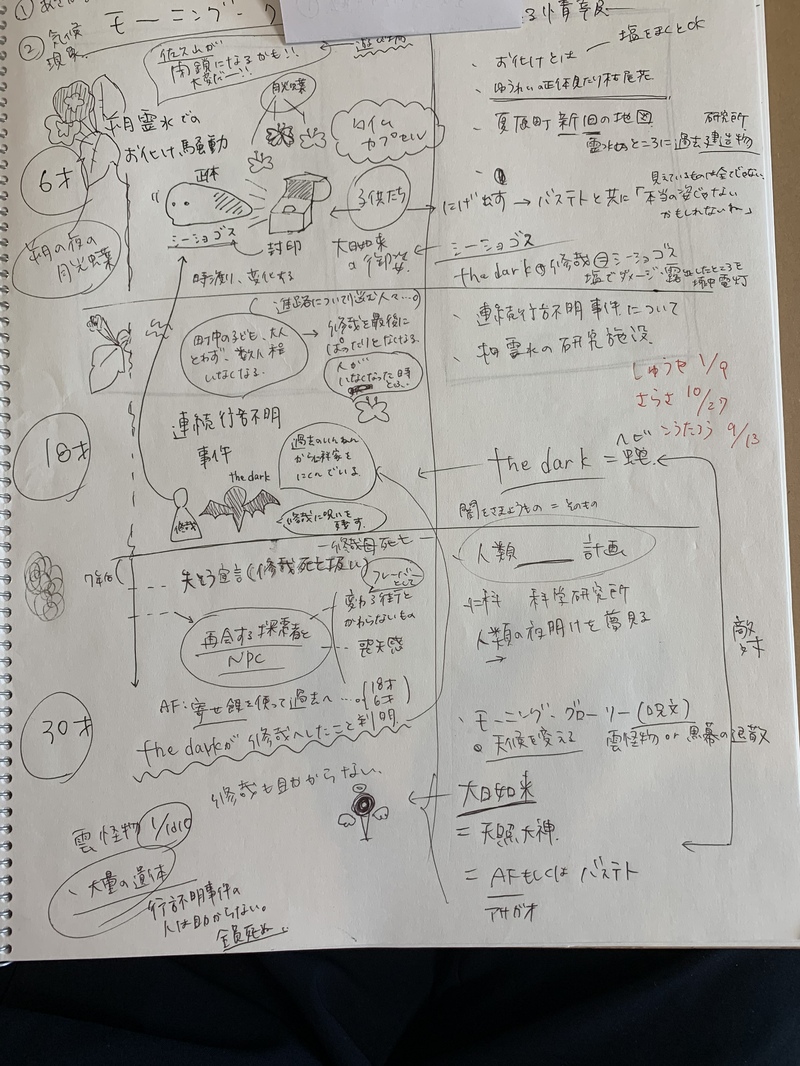 ① あさ
モーニング・
② 気候
現象
佐久山が
閉鎖になるかも!!
大変だー!!
遊び場
情
・お化けとは
塩をまくとOK
・ゆうれいの正体見たり枯尾花
・夏原町 新旧の地図
研究所
ところに過去建造物
朝霊水での
お化け騒動
月光蝶
タイム
カプセル
6才
正体
シーショゴス
封印
子供たち
にげ出す → バステトと共に「本当の姿じゃない
かもしれないね」
見えているものは全てじゃない。
大日如来
の御姿
シーショゴス
朔の夜の
月光蝶
時渡り、変化する
the dark
修哉
シーショゴス
塩でダメージ
露出したところを
懐中電灯
進路について悩む人々…。
町中の子ども、大人
とわず、数人程
いなくなる。
→ 修哉を最後に
ぱったりとなくなる。
人が
いなくなった時
・連続行方不明事件について
・朝霊水の研究施設。
しゅうや 1/9
さらさ 10/27
こうたろう 9/13
連続行方不明
事件
18才
the dark
過去のいんねん
から仁科家を
にくんでいる。
the dark = 蛇
ヘビ
修哉
修哉に呪いを
闇をさまようもの = そのもの
修哉母死亡
7年後
失そう宣言(修哉死亡扱い)
フレーバー
として
変わる街と
かわらないもの
喪失感
再会する探索者と
NPC
人類 計画
仁科 科学研究所
人類の夜明けを夢見る
→
敵対
AF: 寄せ鏡を使って過去へ…。(18才 6才)
30才
the darkが修哉へしたこと判明
修哉も助からない。
・モーニング・グローリー(呪文)
天候を変える
雲怪物 or 黒幕の退散
大日如来
= 天照大神
= AFもしくは バステト
アサガオ
雲怪物 1/1d10
、大量の遺体
行方不明事件の
人は助からない。
全員死ぬ